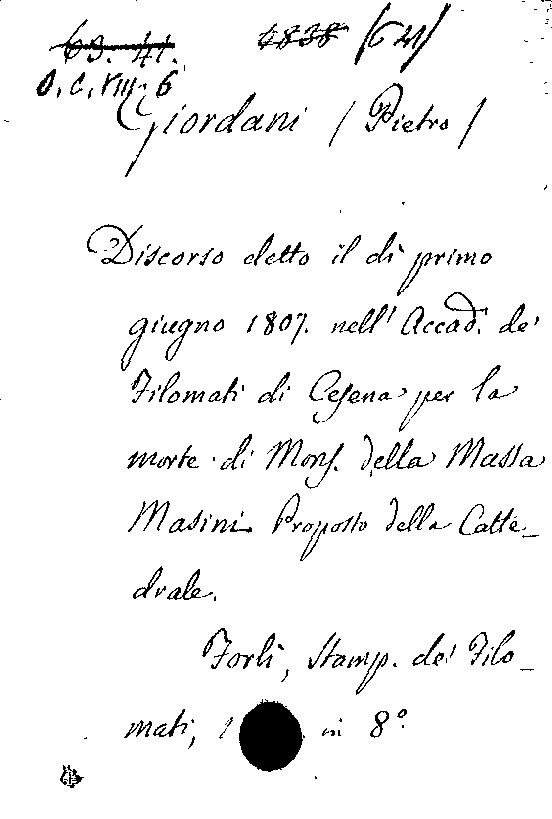 63. 41. 1838 /(641)
O. C. VIII. 6
Giordani / Pietro /
Discorso detto il dì primo
giugno 1807. nell' Accad. de'
Filomati di Cesena per la
morte di Mons. della Massa
Masini Proposto della Catte_
drale.
Forlì, Stamp. de' Filo_
mati, 1 in 8°